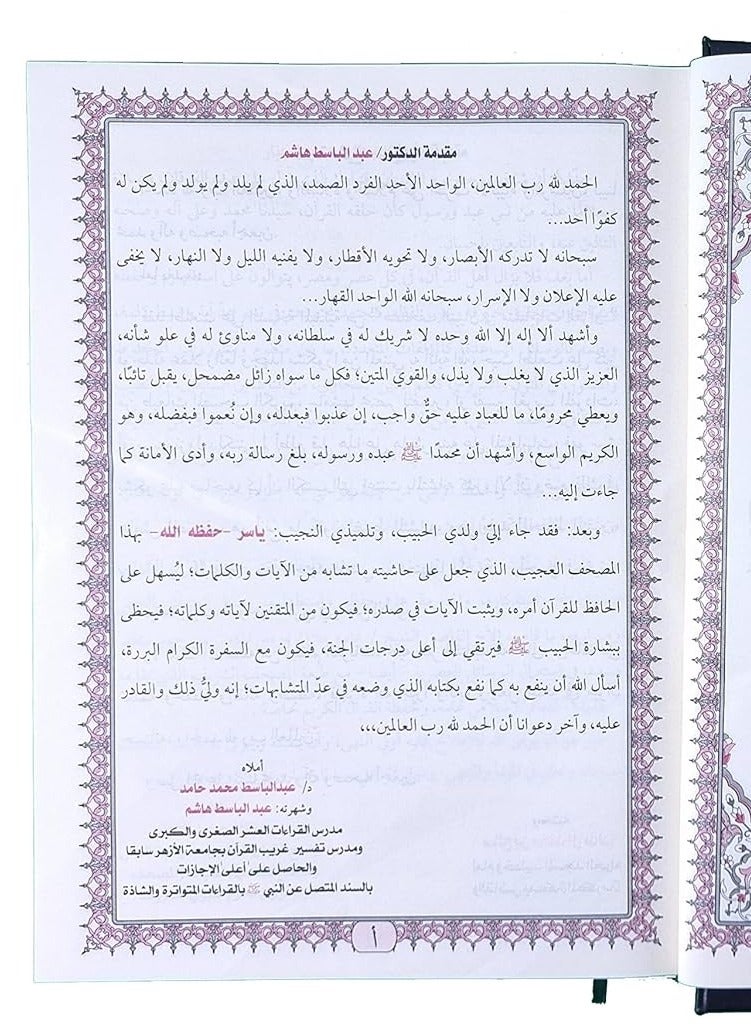 مقدمة الدكتور/ عبد الباسط هاشم
الحمد لله رب العالمين، الواحد الأحد الفرد الصمد، الذي لم يلد ولم يولد ولم يكن له
كفوًا أحد...
سبحانه لا تدركه الأبصار، ولا تحويه الأقطار، ولا يفنيه الليل ولا النهار، لا يخفى
عليه الإعلان ولا الإسرار، سبحانه الله الواحد القهار...
وأشهد ألا إله إلا الله وحده لا شريك له في سلطانه، ولا مناوئ له في علو شأنه،
العزيز الذي لا يغلب ولا يذل، والقوي المتين؛ فكل ما سواه زائل مضمحل، يقبل تائبًا،
ويعطي محرومًا، ما للعباد عليه حقٌّ واجب، إن عذبوا فبعدله، وإن نُعموا فبفضله، وهو
الكريم الواسع، وأشهد أن محمدًا ﷺ عبده ورسوله، بلغ رسالة ربه، وأدى الأمانة كما
جاءت إليه...
وبعد: فقد جاء إليَّ ولدي الحبيب، وتلميذي النجيب: ياسر -حفظه الله- بهذا
المصحف العجيب، الذي جعل على حاشيته ما تشابه من الآيات والكلمات؛ ليُسهل على
الحافظ للقرآن أمره، ويثبت الآيات في صدره؛ فيكون من المتقنين لآياته وكلماته؛ فيحظى
ببشارة الحبيب ﷺ فيرتقي إلى أعلى درجات الجنة، فيكون مع السفرة الكرام البررة،
أسأل الله أن ينفع به كما نفع بكتابه الذي وضعه في عدِّ المتشابهات؛ إنه وليُّ ذلك والقادر
عليه، وآخر دعوانا أن الحمد لله رب العالمين،،،
أملاه
د/ عبدالباسط محمد حامد
وشهرته: عبد الباسط هاشم
مدرس القراءات العشر الصغرى والكبرى
ومدرس تفسير غريب القرآن بجامعة الأزهر سابقا
والحاصل على أعلى الإجازات
بالسند المتصل عن النبي ﷺ بالقراءات المتواترة والشاذة
أ